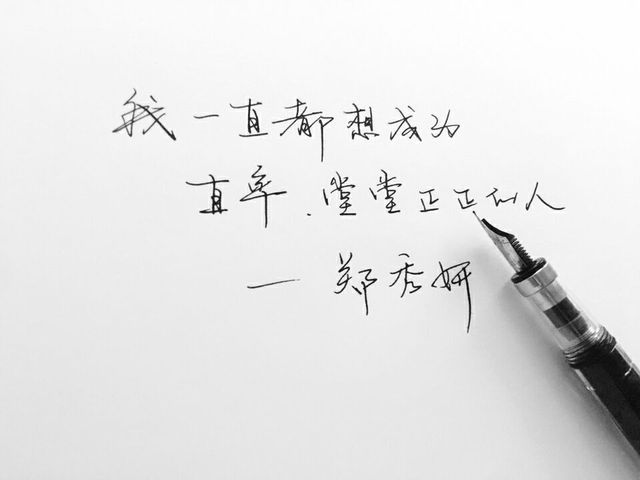 我一直都想成为
直率、堂堂正正的人
— 郑秀妍